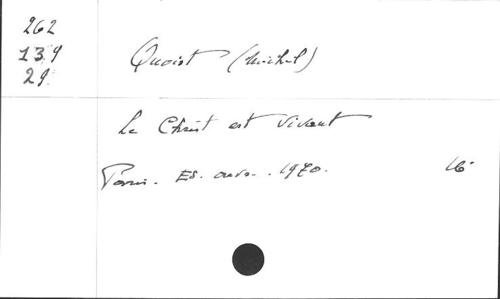 262
139
29
Quoist (Michel)
Le Christ est vivant
Paris. Ed. ouvr. 1970. 16°